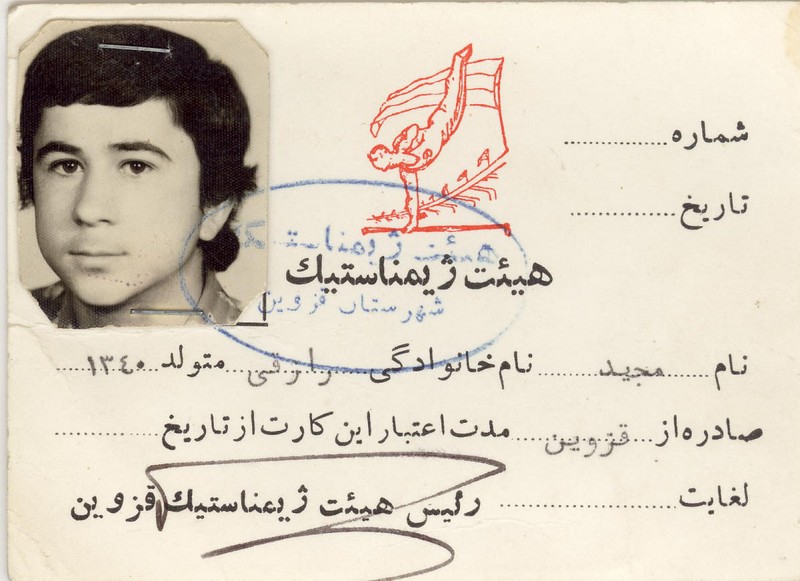 شماره..............
تاریخ..............
هیئت ژیمناستیک
شهرستان قزوین
هیئت ژیمناستیک
نام.....مجید.....نام خانوادگی..........متولد..۱۳۴۰....
صادره از...قزوین...مدت اعتبار این کارت از تاریخ..............
لغایت..............
رئیس هیئت ژیمناستیک قزوین